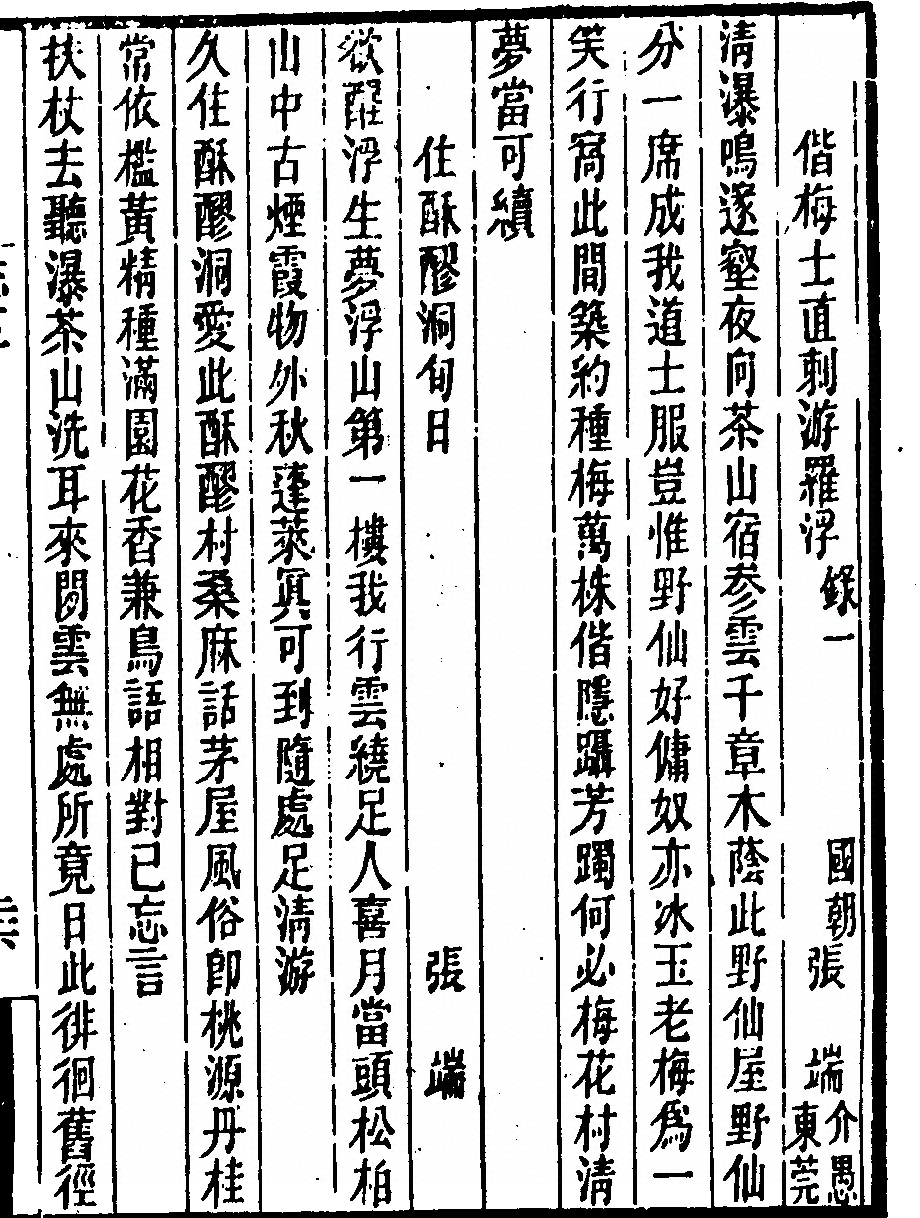 偕梅士直刺游羅浮 錄一 國朝張 端 介愚東莞
清瀑鳴邃壑夜向茶山宿參雲千章木蔭此野仙屋野仙
分一席成我道士服豈惟野仙好傭奴亦冰玉老梅為一
笑行窩此間築約種梅萬株偕隱躡芳躅何必梅花村清
夢當可續
住酥醪洞旬日 張 端
欲醒浮生夢浮山第一樓我行雲繞足人喜月當頭松柏
山中古煙霞物外秋蓬萊真可到隨處足清游
久住酥醪洞愛此酥醪村桑麻話茅屋風俗卽桃源丹桂
常依檻黃精種滿園花香兼鳥語相對已忘言
扶杖去聽瀑茶山洗耳來閒雲無處所竟日此徘徊舊徑